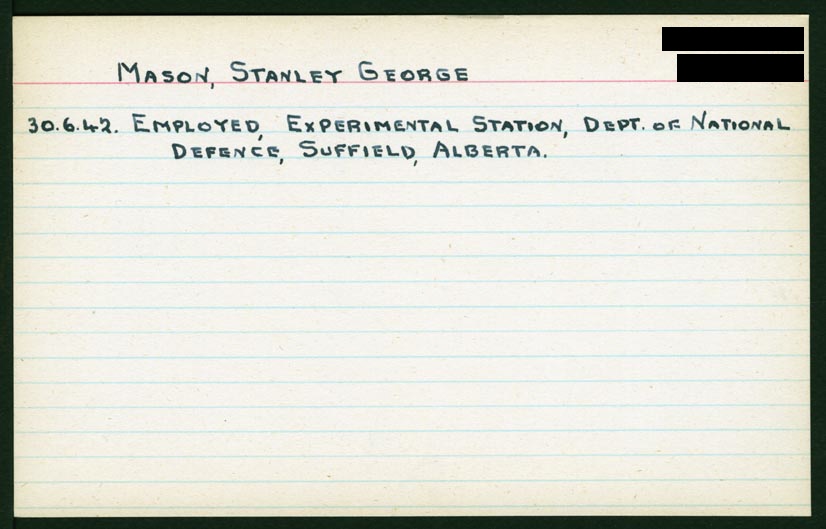 MASON, STANLEY GEORGE
30.6.42. EMPLOYED, EXPERIMENTAL STATION, DEPT. OF NATIONAL
DEFENCE, SUFFIELD, ALBERTA.